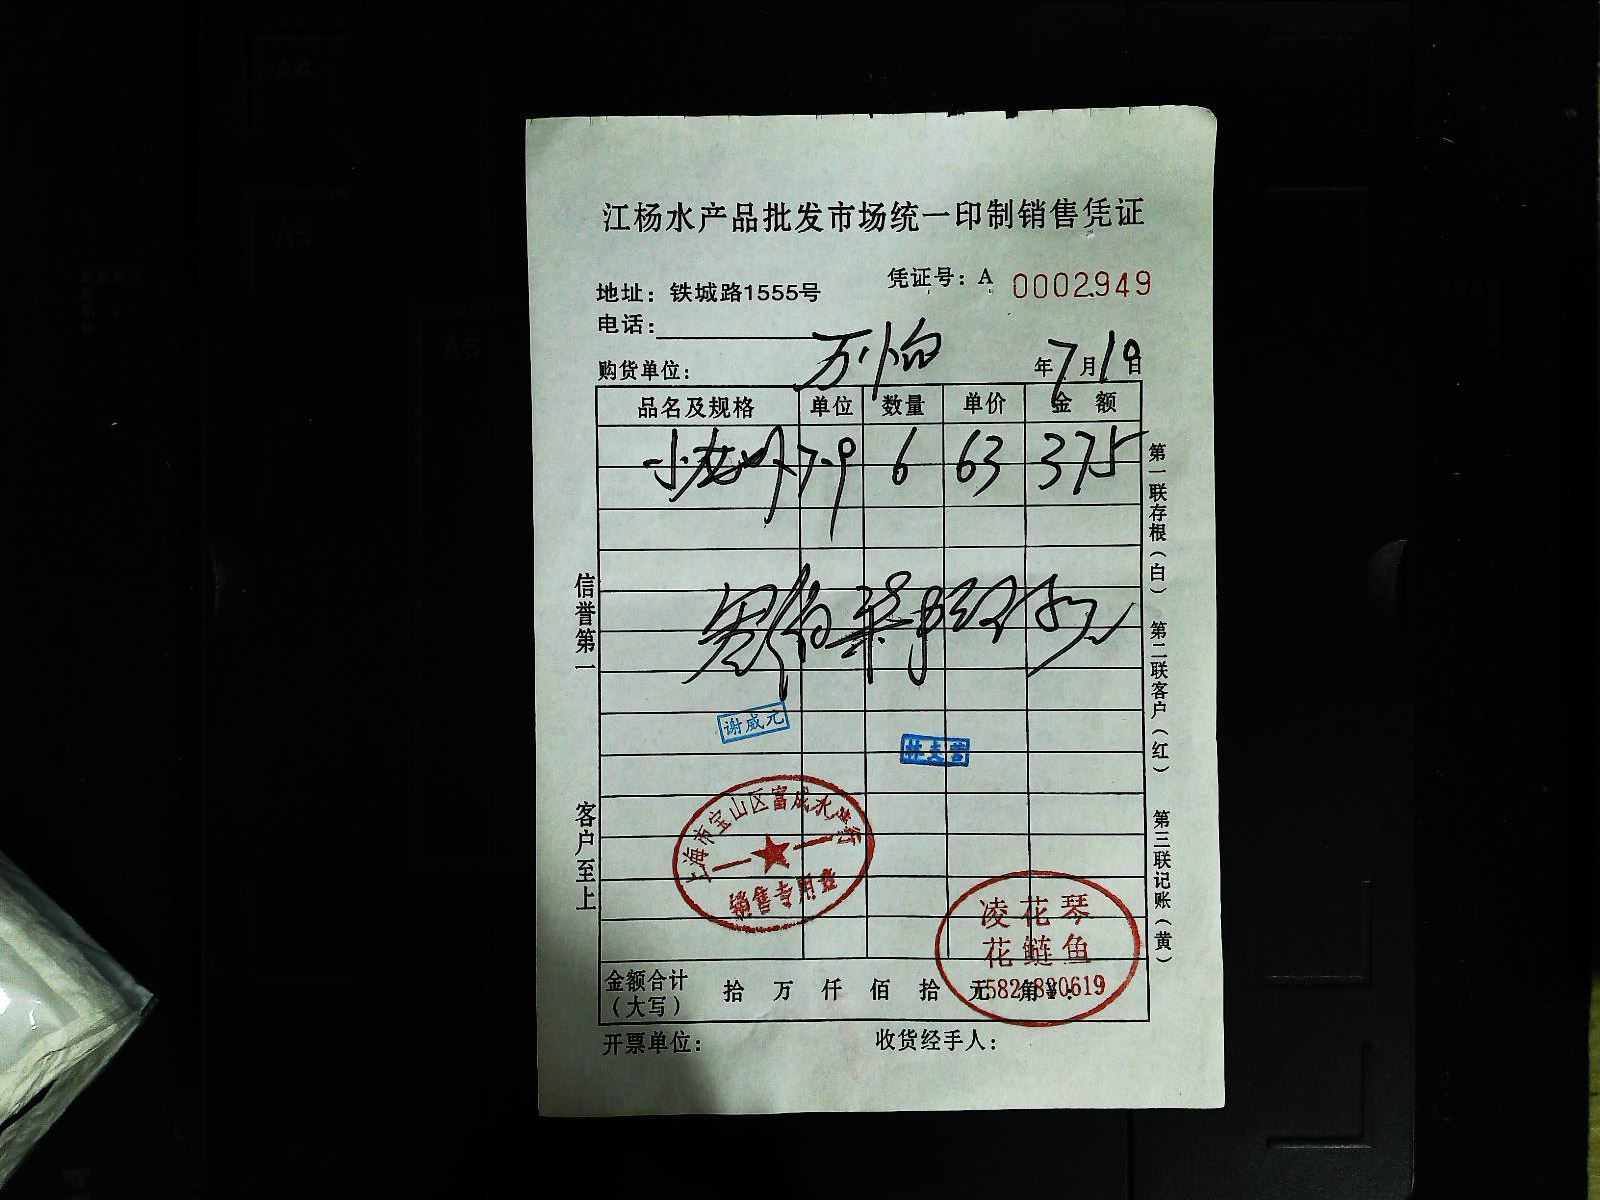 江杨水产品批发市场统一印制销售凭证
凭证号：A 0002949
地址：铁城路1555号
电话：
购货单位： 年7月19日
品名及规格 单位 数量 单价 金 额
小龙虾 7-9 6 63 375
第一联存根（白） 第二联客户（红） 第三联记账（黄）
信誉第一
客户至上
谢威元
上海市宝山区富成水产行
销售专用章
凌花琴
花鲢鱼
金额合计（大写） 拾 万 仟 佰 拾 元 角 ￥：
开票单位： 收货经手人：